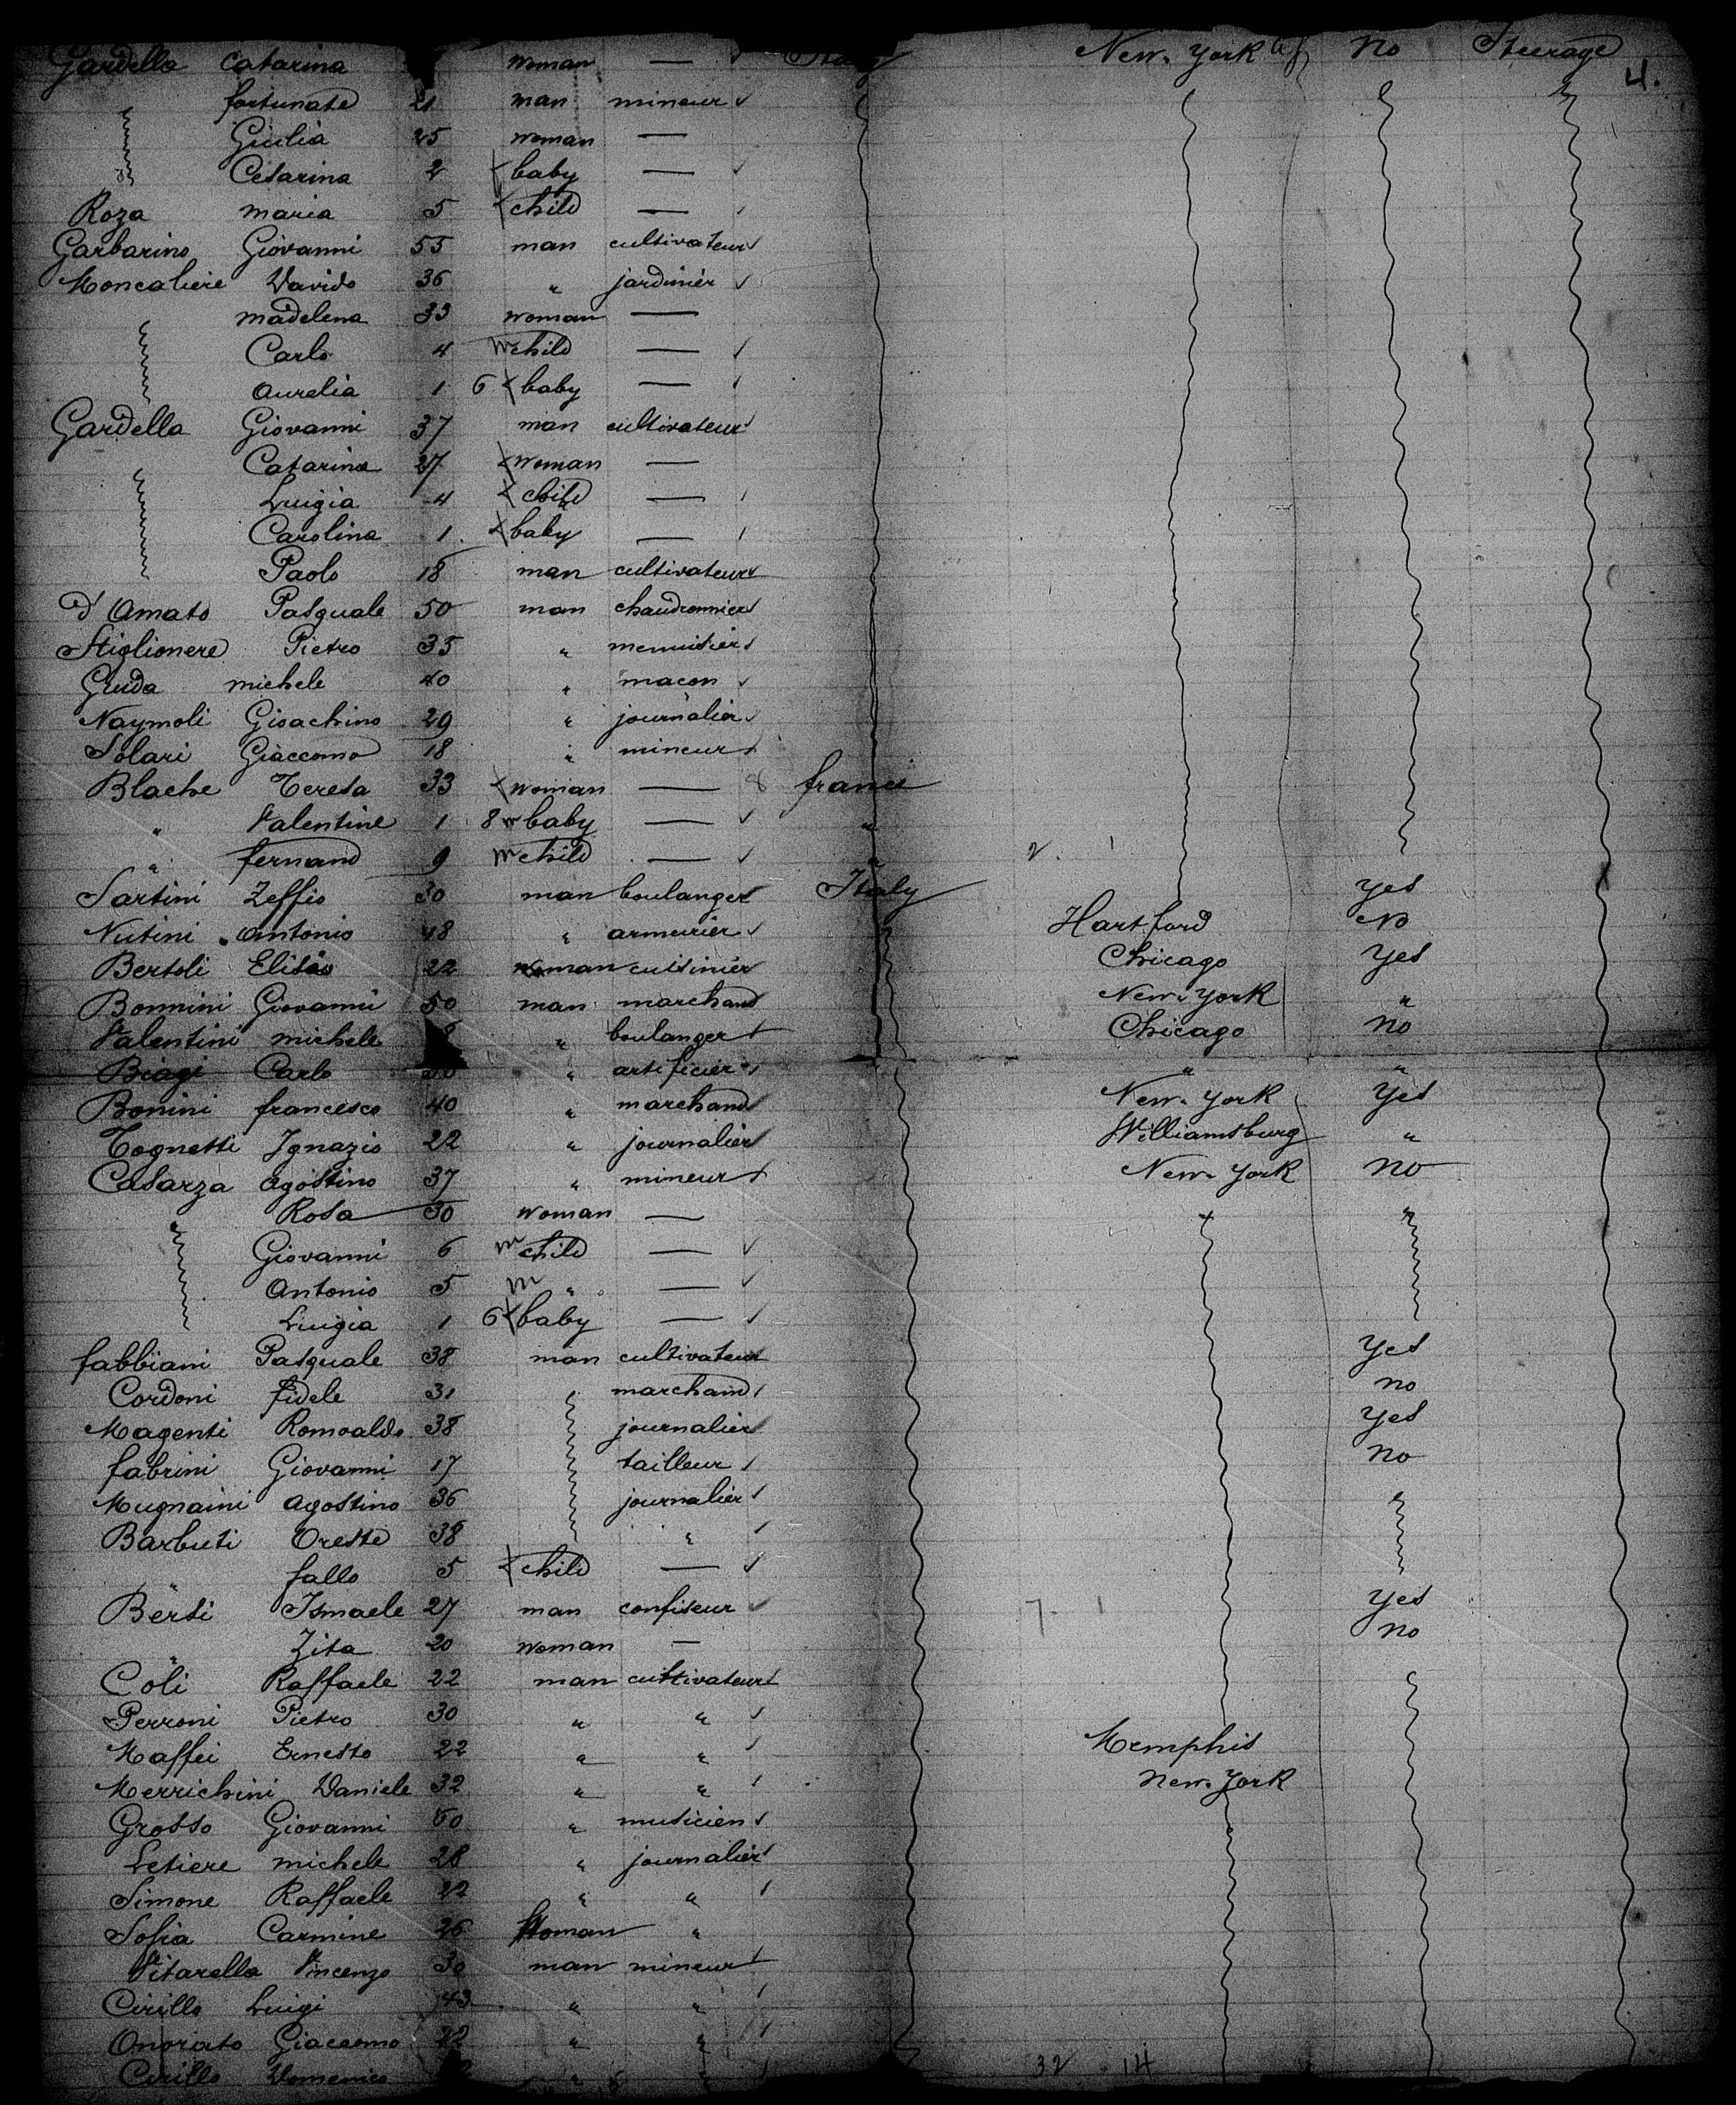 Gardella Catarina woman — New-York no Steerage
4.
fortunato 21 man mineur
Giulia 25 woman —
Cesarina 2 baby —
Roza maria 5 child —
Garbarino Giovanni 55 man cultivateur
Moncaliere Davide 36 " jardinier
madelena 33 woman —
Carlo 4 m child —
Aurelia 1 6 baby —
Gardella Giovanni 37 man cultivateur
Catarina 27 woman —
Luigia 4 child —
Carolina 1 baby —
Paolo 18 man cultivateur
d'Amato Pasquale 50 man chaudronnier
Stiglionere Pietro 35 " menuisier
Guida michele 40 " macon
Naymoli Gioachino 29 " journalier
Solari Giaccomo 18 " mineur
Blache Teresa 33 woman — 8 france
" Valentine 1 8 m baby — "
" fernand 9 m child — " 2. 1
Sartini Zeffio 30 man boulanger Italy yes
Nutini Antonio 48 " armeurier Hartford No
Bertoli Elisio 22 man cuisinier Chicago yes
Bonnini Giovanni 50 man marchand New-York "
Valentini michele " boulanger Chicago no
Biagi Carlo " artificier " "
Bonini francesco 40 " marchand New-York yes
Tognetti Ignazio 22 " journalier Williamsburg "
Casarza agostino 37 " mineur New-York no
Rosa 30 woman — "
Giovanni 6 m child —
Antonio 5 m " —
Luigia 1 6 baby —
fabbiani Pasquale 38 man cultivateur yes
Cordoni fidele 31 marchand no
Magenti Romoaldo 38 journalier yes
fabrini Giovanni 17 tailleur no
Mugnaini agostino 36 journalier
Barbuti Oreste 38 "
" fallo 5 child —
Berti Ismaele 27 man confiseur 7- 1 yes
" Zita 20 woman — no
Coli Raffaele 22 man cultivateur
Perroni Pietro 30 " "
Maffei Ernesto 22 " " Memphis
Merrichini Daniele 32 " " New-York
Grosso Giovanni 50 " musicien
Letiere michele 28 " journalier
Simone Raffaele 22 " "
Sofia Carmine 26 Woman "
Vitarella Vincenzo 30 man mineur
Cirillo Luigi 43 " "
Onorato Giacomo 22 " "
Cirillo Domenico " " 32 14